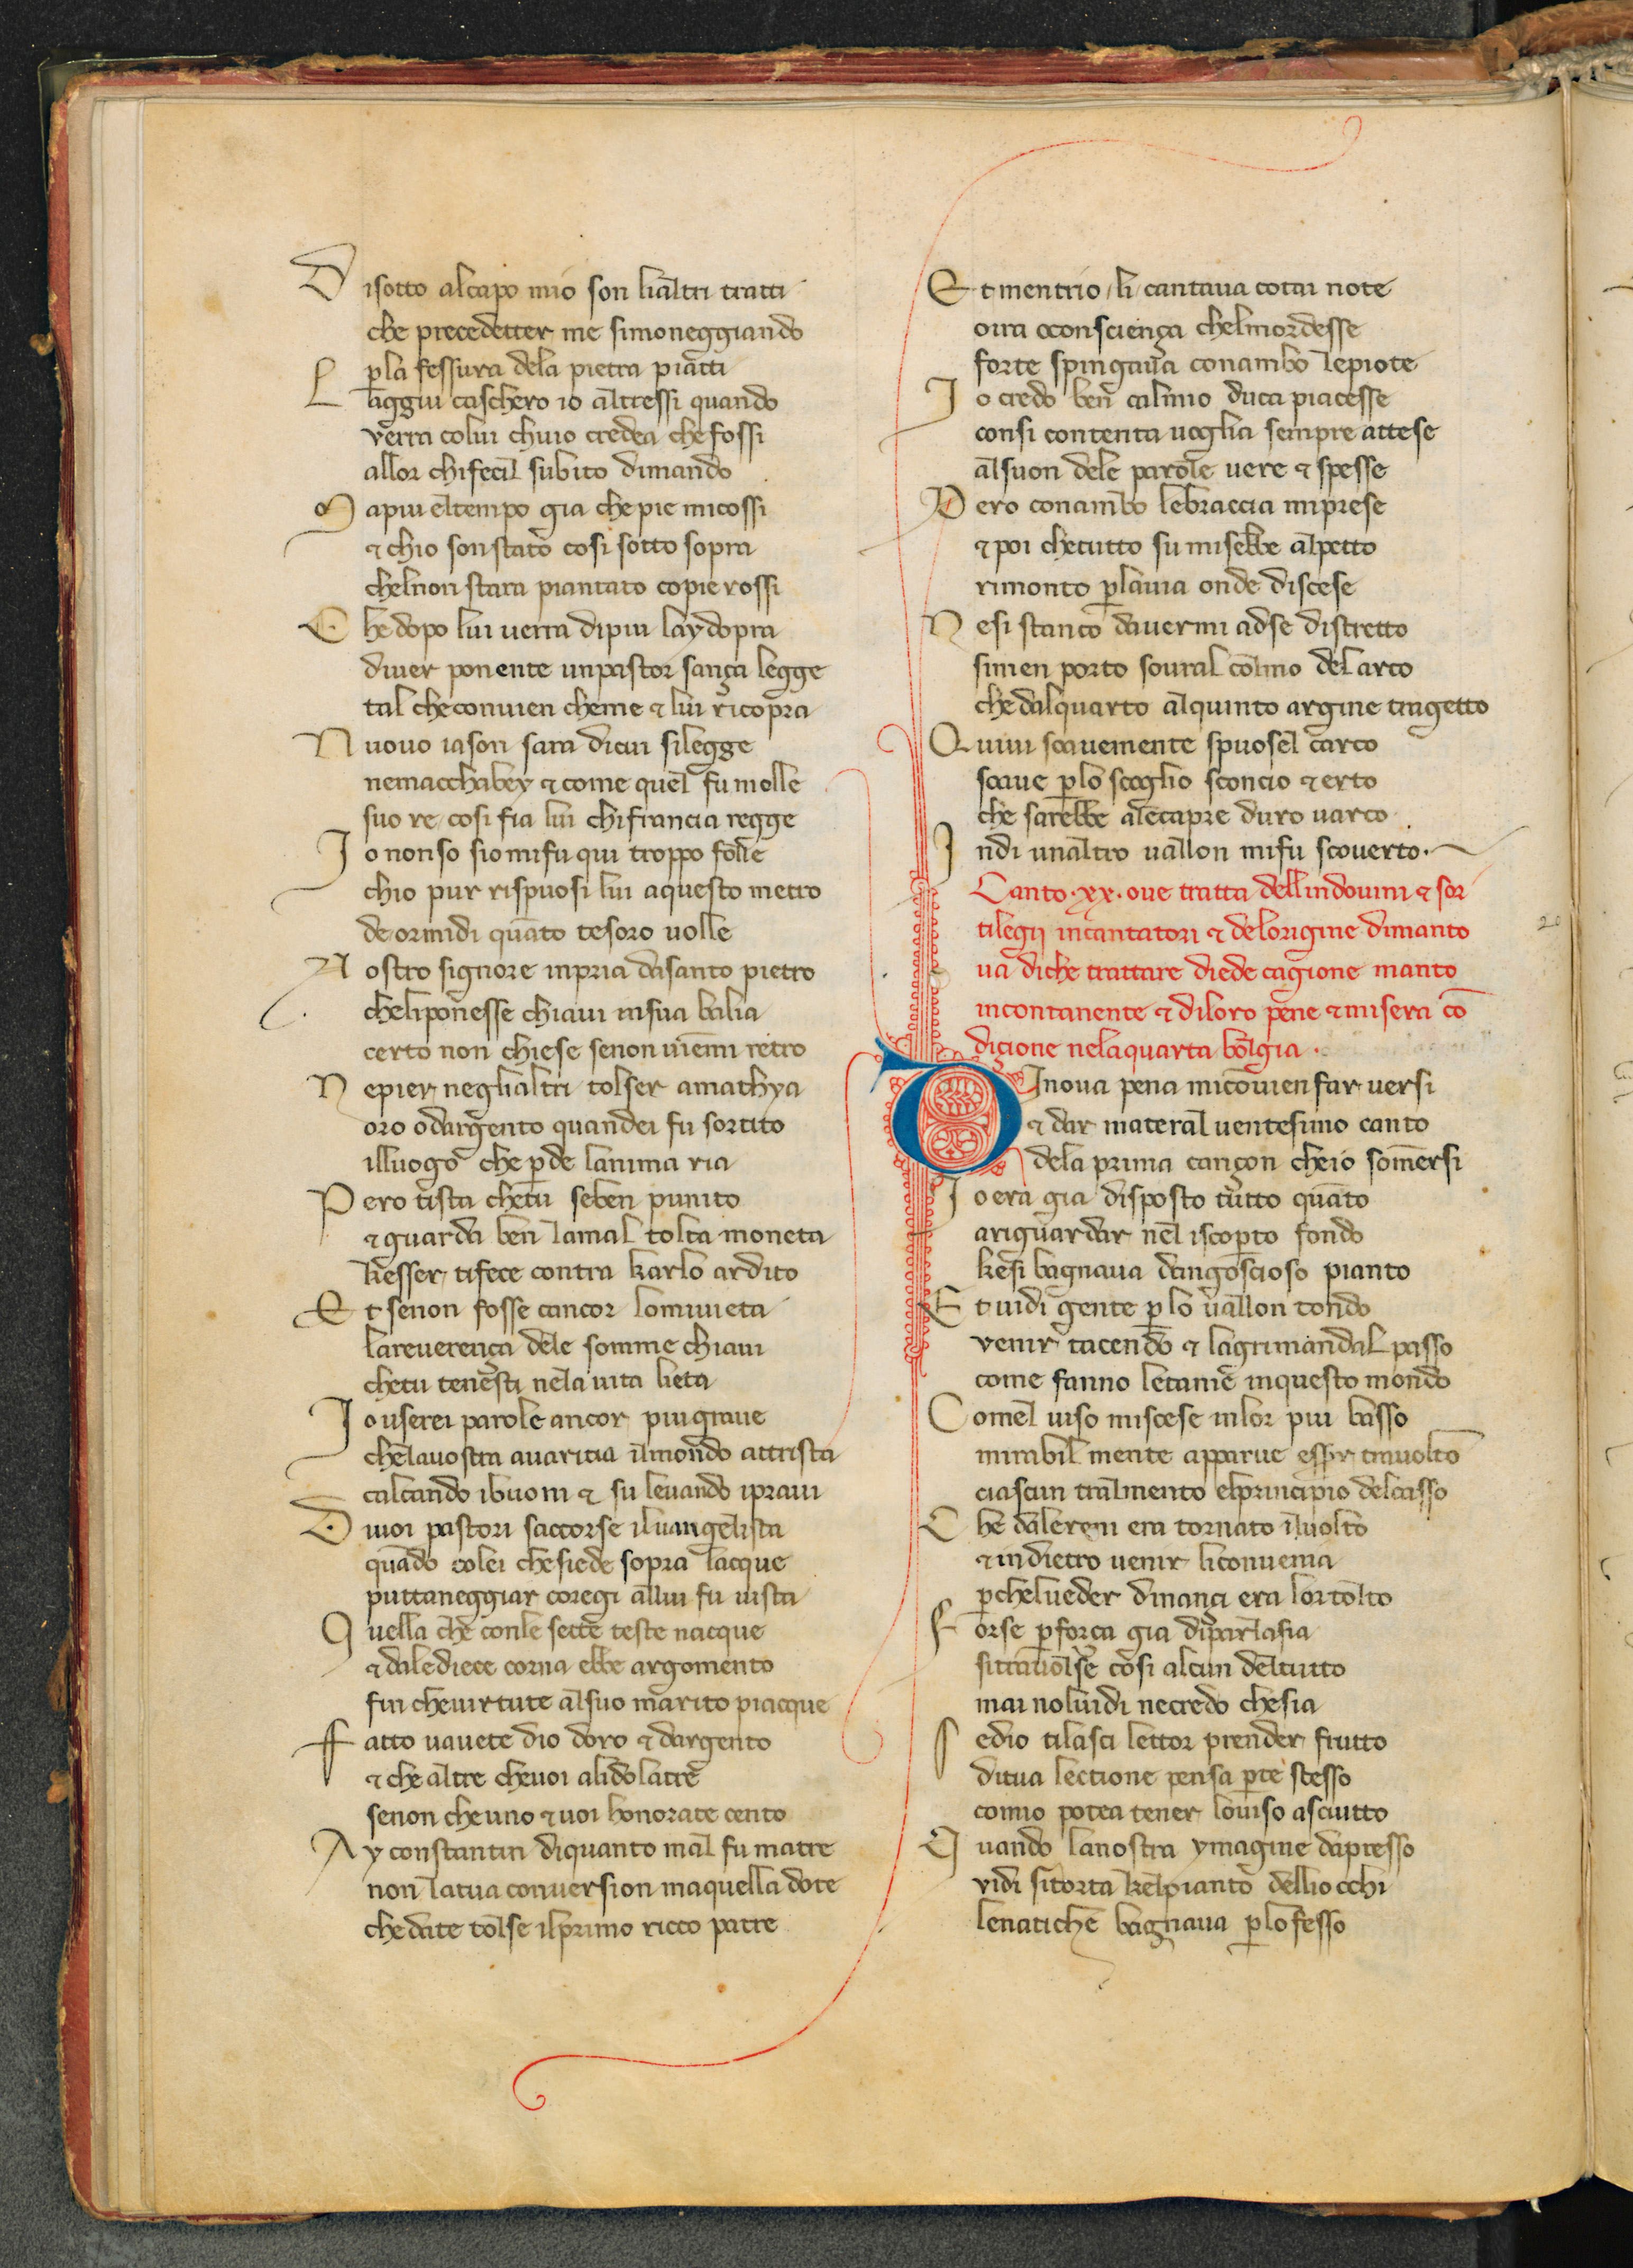 Disotto alcapo mio son lialtri tratti
che precedetter me simoneggiando
pla fessura dela pietra piatti
Laggiu caschero io altressi quando
verra colui chuio credea chefossi
allor chifecil subito dimando
Mapiu eltempo gia chepie micossi
⁊ chio sonstato cosi sotto sopra
chelnon stara piantato copie rossi
Chedopo lui uerra dipiu laydopra
diuer ponente unpastor sança legge
tal checonuien cheme ⁊ lui ricopra
Nuouo iason sara dicui silegge
nemacchabey ⁊ come quel fu molle
suo re cosi fia lui chifrancia regge
Io nonso siomifu qui troppo folle
chio pur rispuosi lui aquesto metro
de ormidi quāto tesoro uolle
Nostro signore inpria dasanto pietro
cheliponesse chiaui insua balia
certo non chiese senon uiemmi retro
Nepier neglialtri tolser amathya
oro odargento quandei fu sortito
illuogo che pde lanima ria
Pero tista chetu seben punito
⁊ guarda ben lamal tolta moneta
kesser tifece contra karlo ardito
Et senon fosse cancor lomiuieta
lareuerença dele somme chiaui
chetu tenesti nela uita lieta
Io userei parole ancor piugraue
chelauostra auaritia ilmondo attrista
calcando ibuoni ⁊ su leuando ipraui
Diuoi pastori saccorse iluangelista
quādo colei chesiede sopra lacque
puttaneggiar coregi allui fu uista
Quella che conle sette teste nacque
⁊ dalediece corna ebbe argomento
fin cheuirtute alsuo marito piacque
Fatto uauete dio doro ⁊ dargento
⁊ che altre cheuoi alidolatre
senon cheuno ⁊ uoi honorate cento
Ay constantin diquanto mal fu matre
non latua conuersion maquella dote
chedate tolse ilprimo ricco patre
Et mentrio li cantaua cotai note
oira oconsciença chelmordesse
forte spingaua conambo lepiote
Io credo ben calmio duca piacesse
consi contenta uoglia sempre attese
alsuon dele parole uere ⁊ spesse
Pero conambo lebraccia miprese
⁊ poi chetutto su misebbe alpetto
rimonto plauia onde discese
Nesi stanco dauermi adse distretto
simen porto soural colmo del arco
chedalquarto alquinto argine tragetto
Quiui soauemente spuosel carco
soaue plo scoglio sconcio ⁊ erto
che sarebbe alecapre duro uarco
Indi unaltro uallon mifu scouerto.
Canto .xx. oue tratta dellindouini ⁊ sor
tilegij incantatori ⁊ delorigine dimanto
ua diche trattare diede cagione manto
incontanente ⁊ diloro pene ⁊ misera cō
dicione nelaquarta bolgia .
Dinoua pena micōuien far uersi
⁊ dar materal uentesimo canto
dela prima cançon cheio somersi
Io era gia disposto tutto quāto
ariguardar nel iscopto fondo
kesi bagnaua dangoscioso pianto
Et uidi gente p lo uallon tondo
venir tacendo ⁊ lagrimandal passo
come fanno letanie inquesto mondo
Comel uiso miscese inlor piu basso
mirabil mente apparue esser trauolto
ciascun tralmento elprincipio delcasso
Che dalereni era tornato iluolto
⁊ indietro uenir liconuenia
pchelueder dinançi era lortolto
Forse pforça gia diparlasia
sitrauolse cosi alcun deltutto
mai noluidi necredo chesia
Sedio tilasci lettor prender frutto
ditua lectione pensa pte stesso
comio potea tener louiso asciutto
Quando lanostra ymagine dapresso
vidi sitorta kelpianto delliocchi
lenatiche bagnaua plo fesso
20